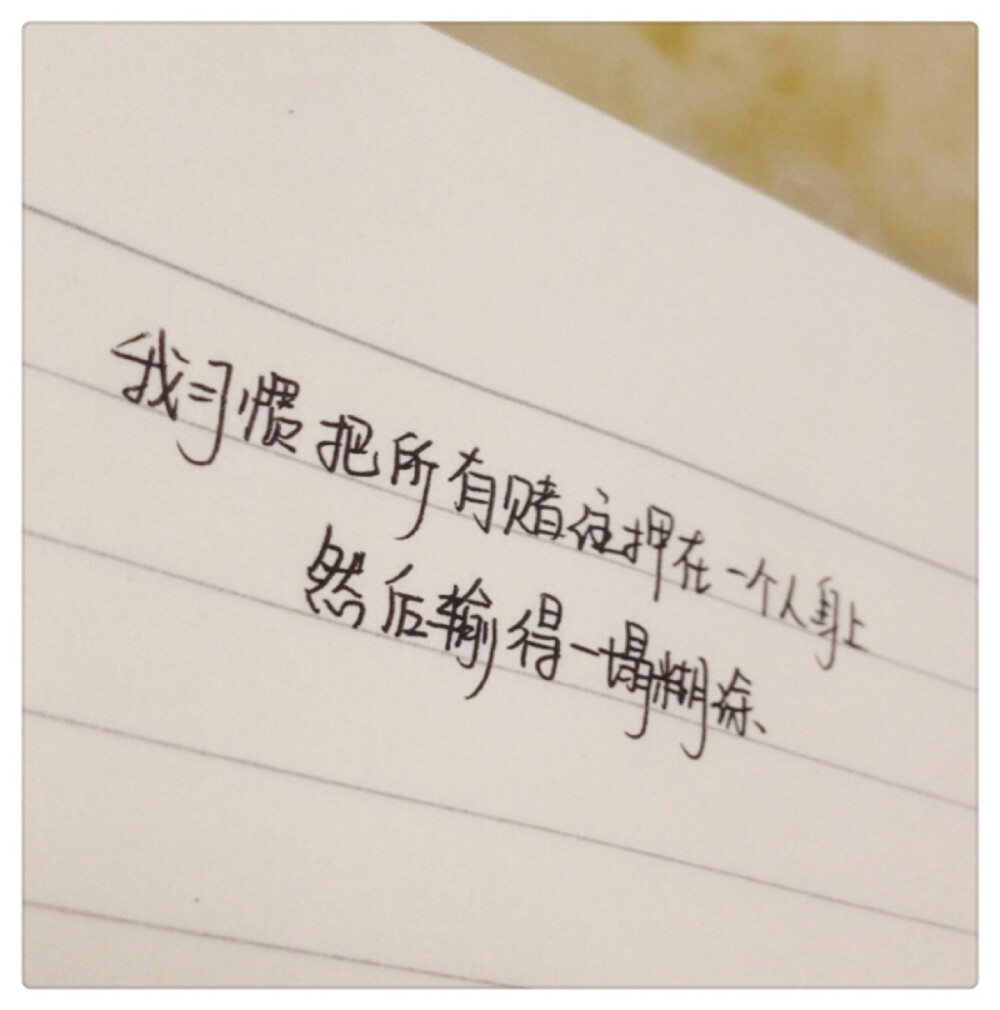 我习惯把所有赌注押在一个人身上
然后输得一塌糊涂、